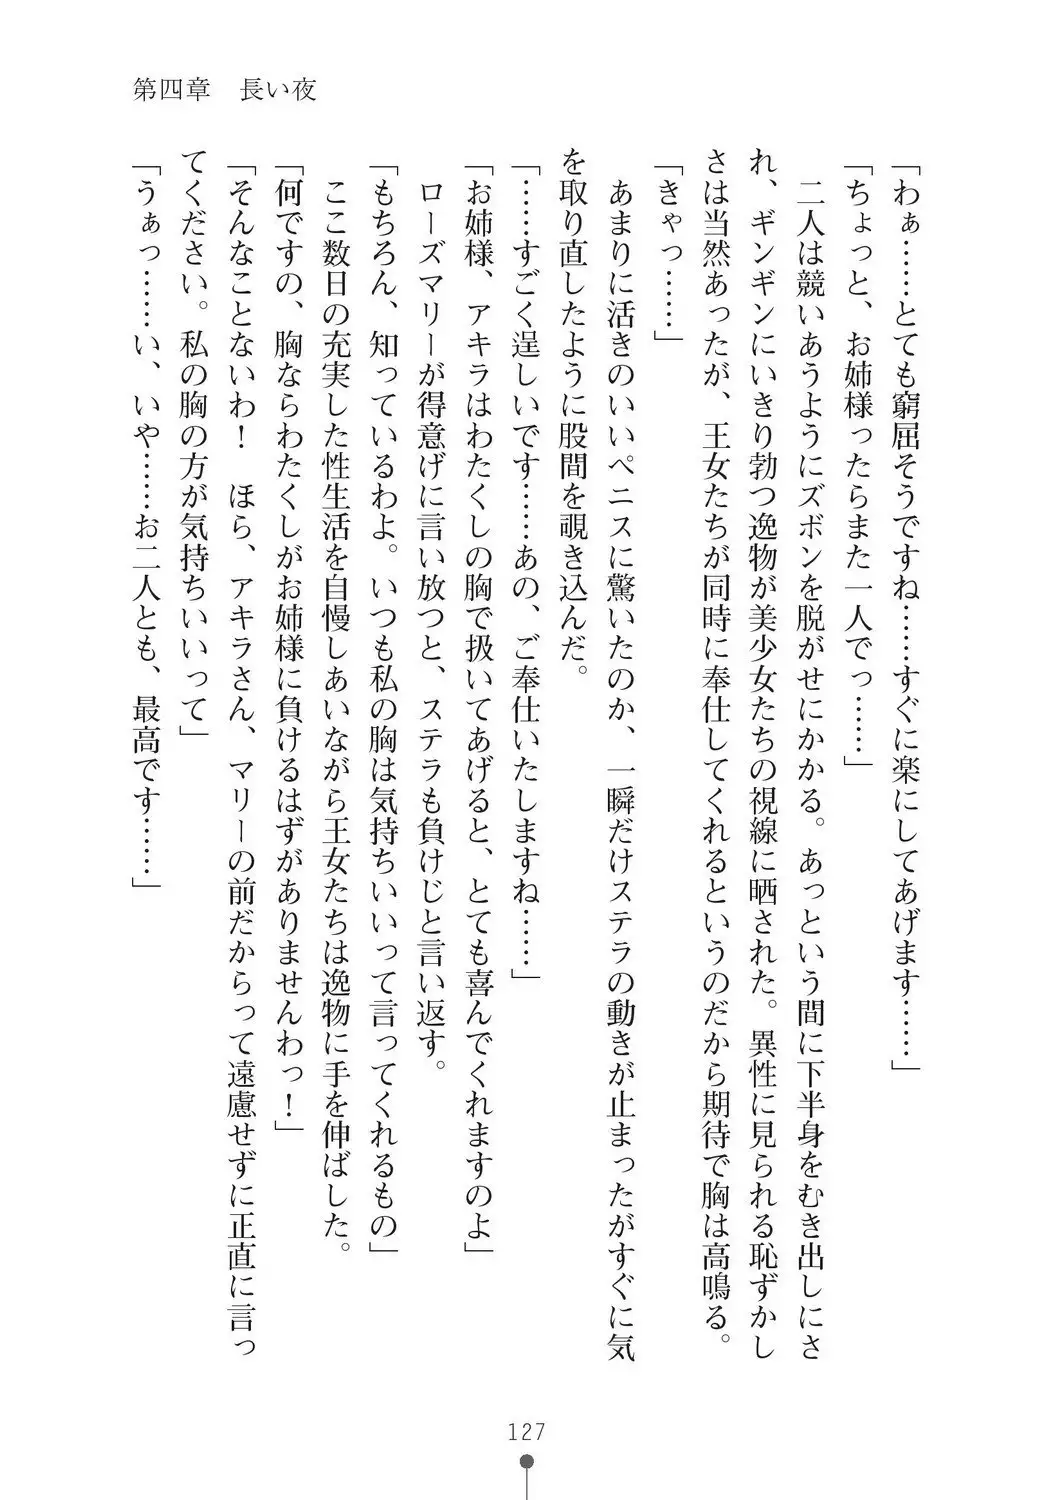 第四章　長い夜
「わぁ……とても窮屈そうですね……すぐに楽にしてあげます……」
「ちょっと、お姉様ったらまた一人でっ……」
　二人は競いあうようにズボンを脱がせにかかる。あっという間に下半身をむき出しにさ
れ、ギンギンにいきり勃つ逸物が美少女たちの視線に晒された。異性に見られる恥ずかし
さは当然あったが、王女たちが同時に奉仕してくれるというのだから期待で胸は高鳴る。
「きゃっ……」
　あまりに活きのいいペニスに驚いたのか、一瞬だけステラの動きが止まったがすぐに気
を取り直したように股間を覗き込んだ。
「……すごく逞しいです……あの、ご奉仕いたしますね……」
「お姉様、アキラはわたくしの胸で扱いてあげると、とても喜んでくれますのよ」
　ローズマリーが得意げに言い放つと、ステラも負けじと言い返す。
「もちろん、知っているわよ。いつも私の胸は気持ちいいって言ってくれるもの」
　ここ数日の充実した性生活を自慢しあいながら王女たちは逸物に手を伸ばした。
「何ですの、胸ならわたくしがお姉様に負けるはずがありませんわっ！」
「そんなことないわ！　ほら、アキラさん、マリーの前だからって遠慮せずに正直に言っ
てください。私の胸の方が気持ちいいって」
「うぁっ……い、いや……お二人とも、最高です……」
127